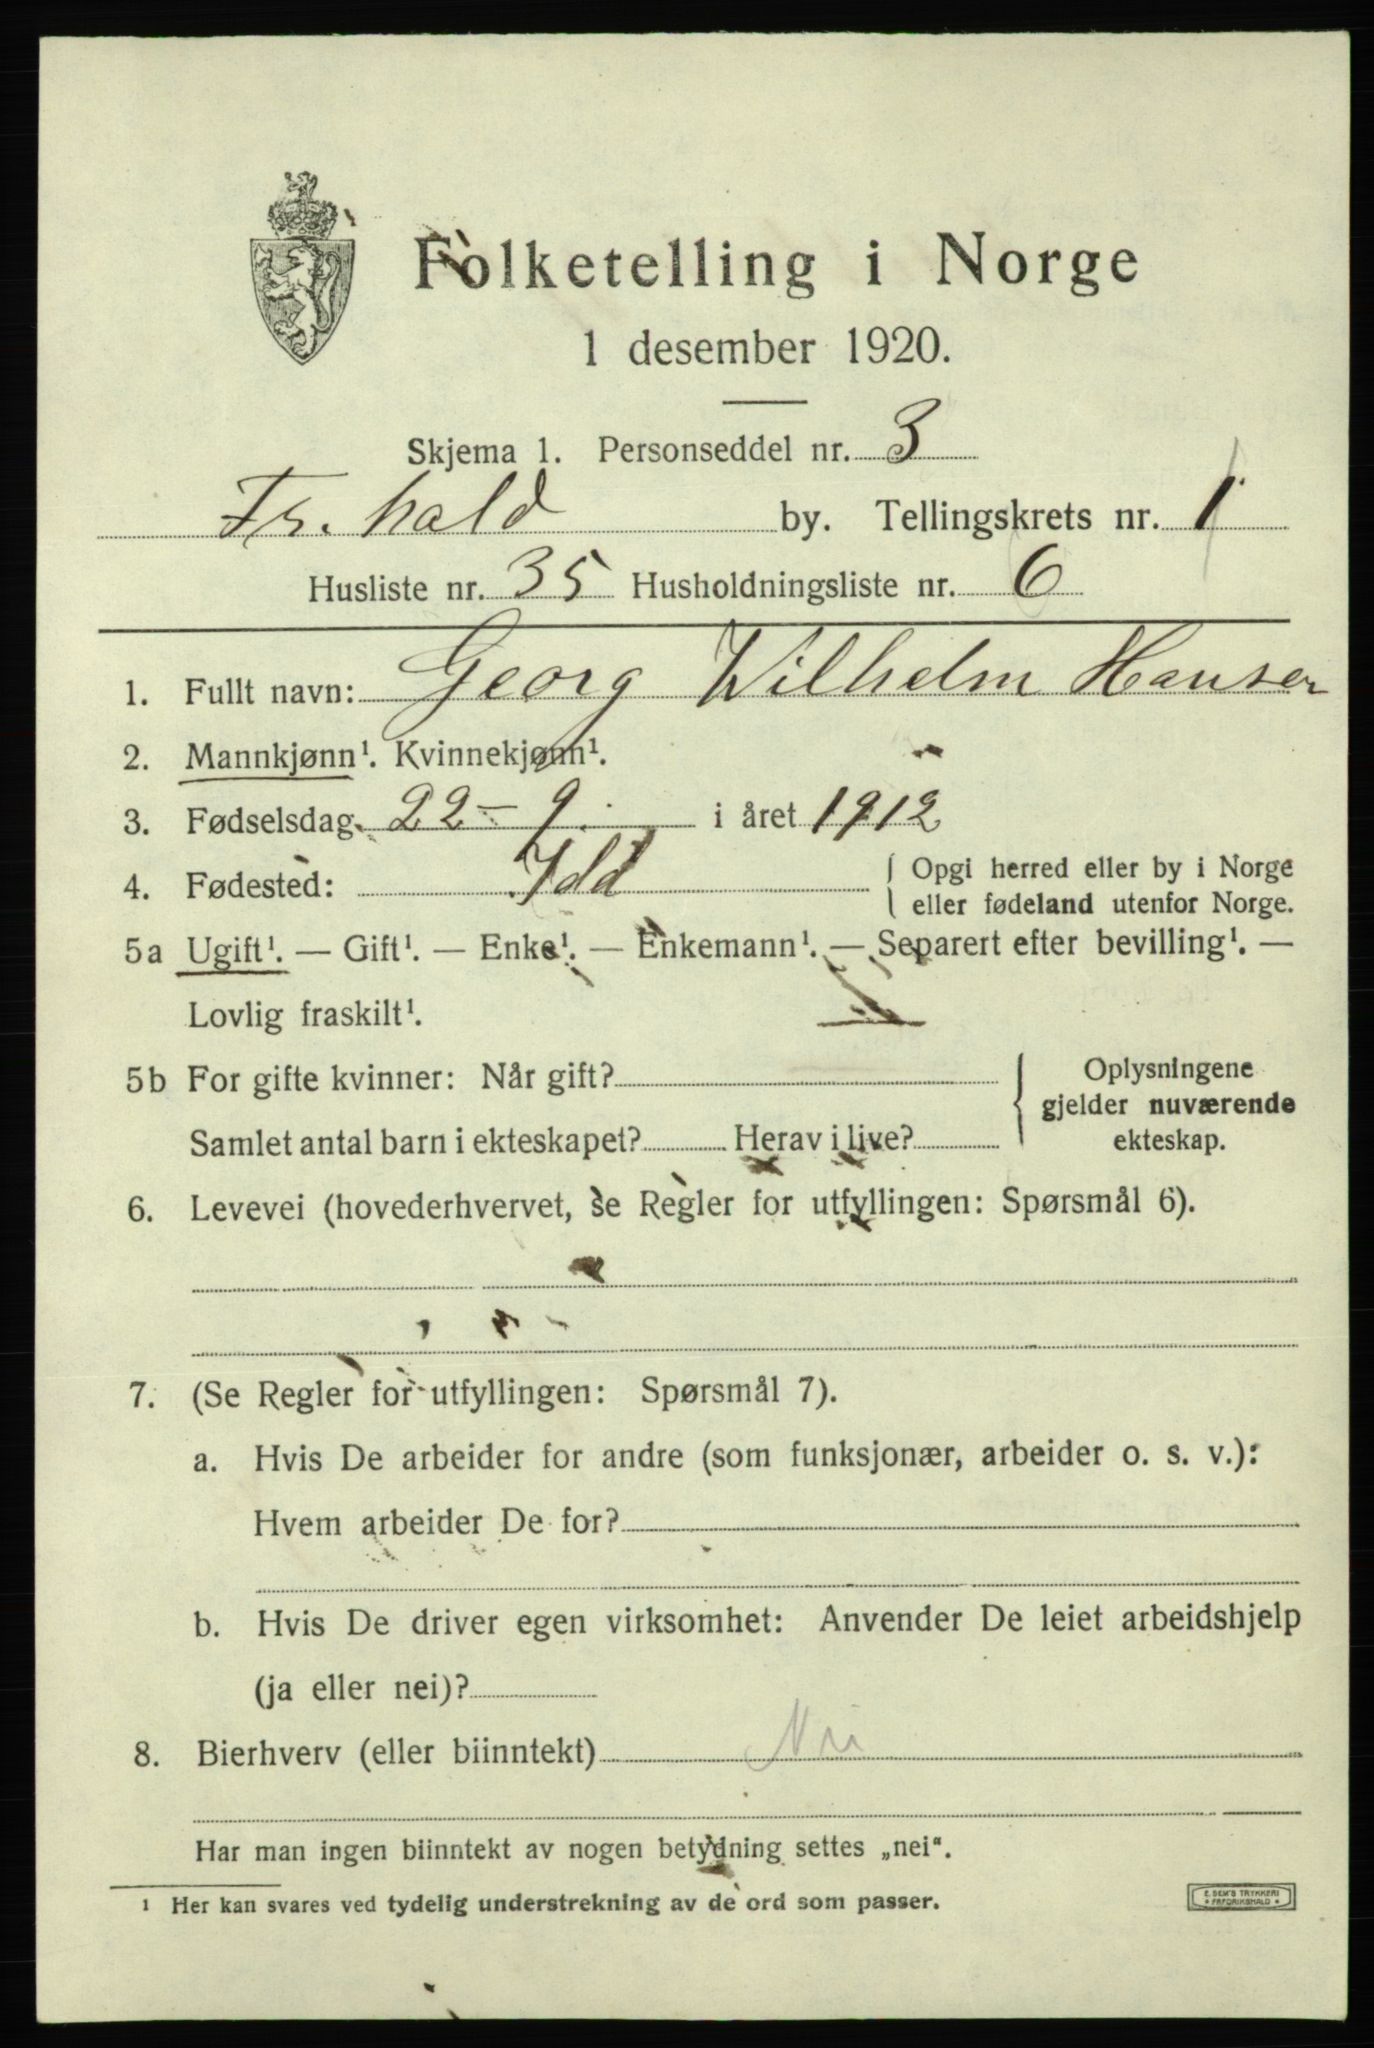 Folketelling i Norge
1 desember 1920.
Skjema 1. Personseddel nr. 3
Fr.hald by. Tellingskrets nr. 1
Husliste nr. 35 Husholdningsliste nr. 6
1. Fullt navn: Georg Wilhelm Hansen
2. Mannkjønn¹. Kvinnekjønn¹.
3. Fødselsdag 22 - 9. i året 1912
4. Fødested: Idd { Opgi herred eller by i Norge
eller fødeland utenfor Norge.
5a Ugift¹. — Gift¹. — Enke¹. — Enkemann¹. — Separert efter bevilling¹. —
Lovlig fraskilt¹.
5b For gifte kvinner: Når gift? { Oplysningene
gjelder nuværende
Samlet antal barn i ekteskapet? Herav i live? ekteskap.
6. Levevei (hovederhvervet, se Regler for utfyllingen: Spørsmål 6).
7. (Se Regler for utfyllingen: Spørsmål 7).
a. Hvis De arbeider for andre (som funksjonær, arbeider o. s. v.):
Hvem arbeider De for?
b. Hvis De driver egen virksomhet: Anvender De leiet arbeidshjelp
(ja eller nei)?
8. Bierhverv (eller biinntekt) Nei
Har man ingen biinntekt av nogen betydning settes „nei“.
¹ Her kan svares ved tydelig understrekning av de ord som passer.
E. SEM'S TRYKKERI
• FREDRIKSHALD •